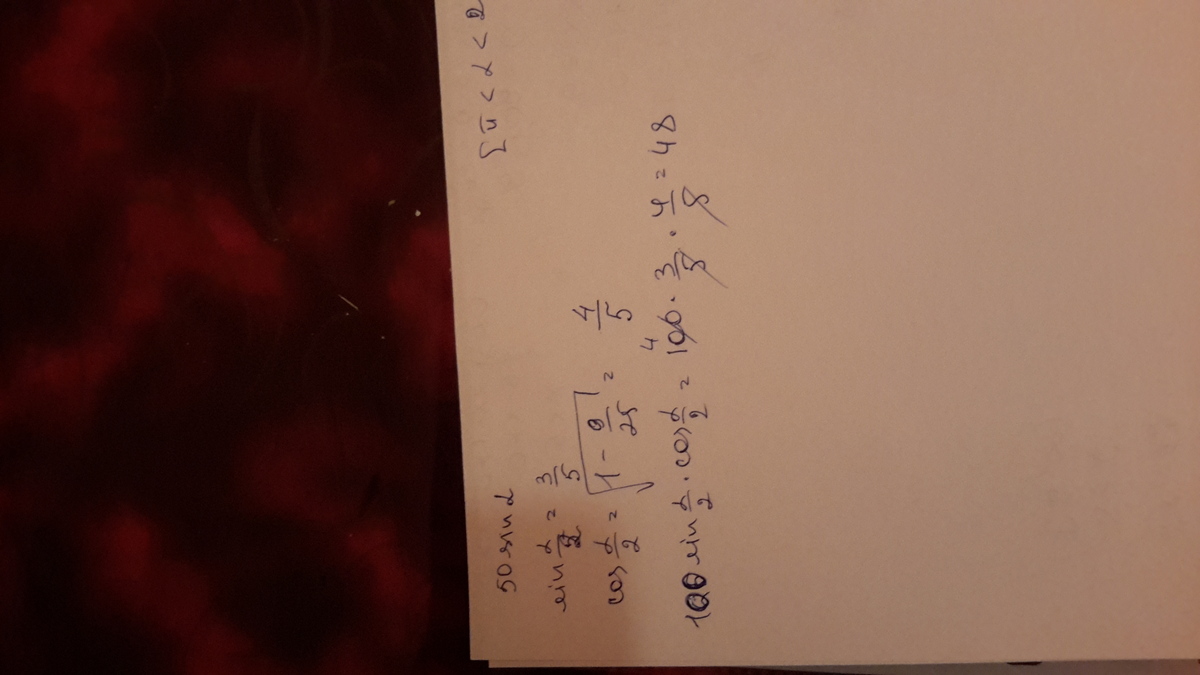 [π < α < 2
50 sin α
sin α/2 = 3/5
cos α/2 = √(1 - 9/25) = 4/5
100 sin α/2 · cos α/2 = 100 · 3/5 · 4/5 = 48
4